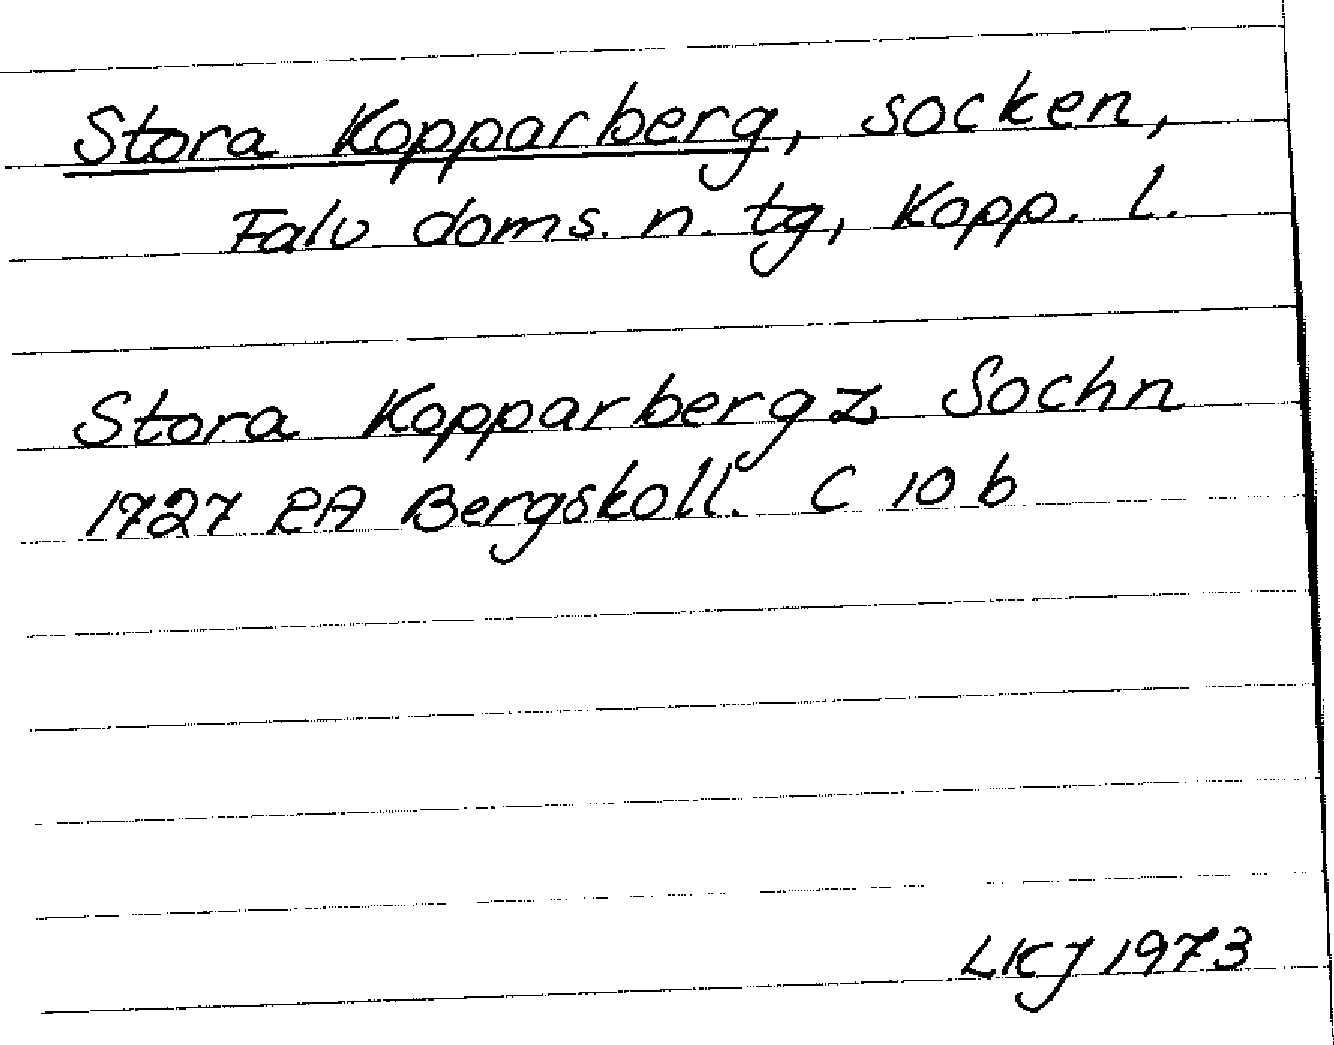 Stora Kopparberg, socken,
Falu doms. n. tg, Kopp. l.
Stora Kopparbergz Sochn
1727 RA Bergskoll. C 10 b
LKJ 1973